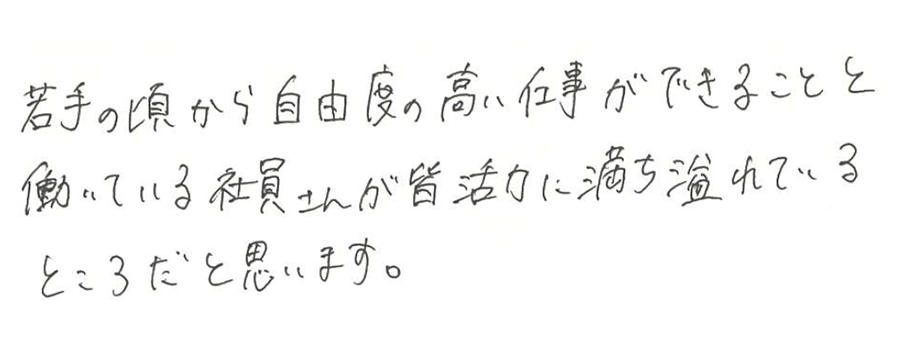 若手の頃から自由度の高い仕事ができることと
働いている社員さんが皆活力に満ち溢れている
ところだと思います。